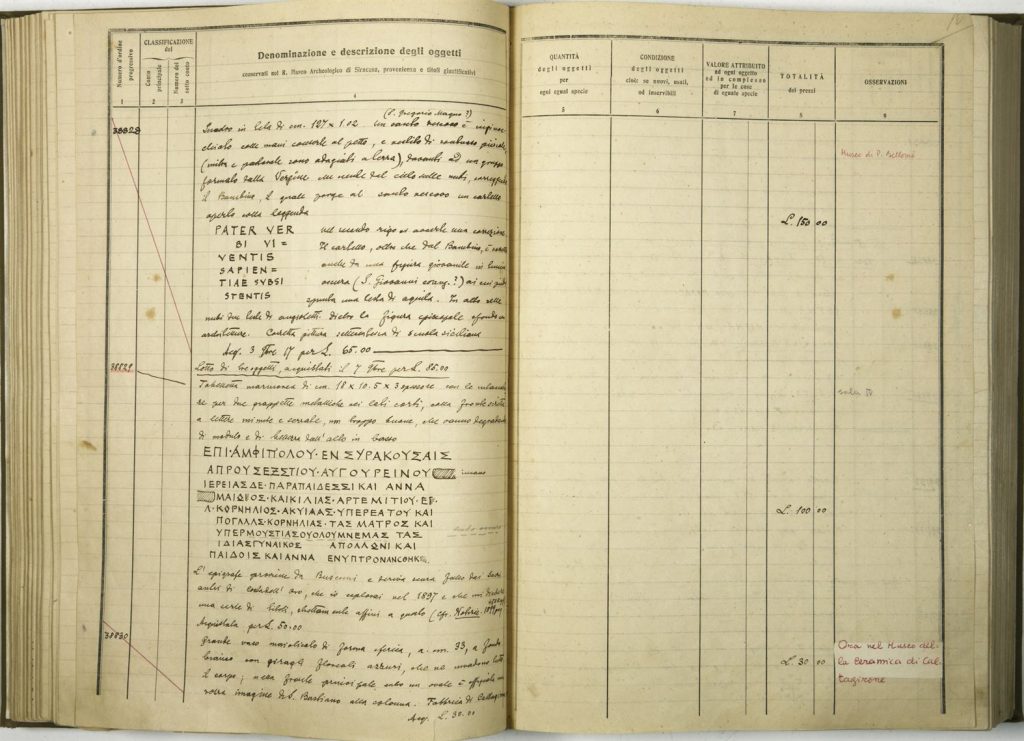 Numero d'ordine progressivo
CLASSIFICAZIONE del
Conto principale
Numero del sotto conto
Denominazione e descrizione degli oggetti
conservati nel R. Museo Archeologico di Siracusa, provenienza e titoli giustificativi
1 2 3 4
(S. Gregorio Magno?)
38828 Quadro in tela di cm. 127 x 1.02. Un santo vescovo è inginoc-
chiato colle mani conserte al petto, e vestito di
(mitra e pastorale sono adagiati a terra), davanti ad un gruppo
formato dalla Vergine che scende dal cielo sulle nubi, sorreggendo
il Bambino, il quale porge al santo vescovo un cartello
aperto colla leggenda
PATER VER nel secondo rigo si avverte una correzione.
BI VI = Il cartello, oltre che dal Bambino, è
VENTIS anche da una figura giovanile in
SAPIEN = oscura (S. Giovanni evang.?) ai cui piedi
TIAE SUBSI spunta una testa di aquila. In alto nelle
STENTIS
nubi due teste di angioletti. Dietro la figura episcopale sfondo
architetture. Corretta pittura settecentesca di scuola siciliana
Acq. 3 9bre 17 per L. 65.00
38829 Lotto di tre oggetti, acquistati il 7 9bre per L. 85.00
Tabelletta marmorea di cm. 18 x 10.5 x 3 spessore con le
re per due grappette metalliche nei lati corti, colla fronte scritta
a lettere minute e serrate, non troppo buone, che vanno degradando
di modulo e di bellezza dall'alto in basso
ΕΠΙ·ΑΜΦΙΠΟΛΟΥ·ΕΝ ΣΥΡΑΚΟΥΣΑΙΣ
ΑΠΡΟΥ ΣΕΞΣΤΙΟΥ·ΑΥΓΟΥΡΕΙΝΟΥ
ΙΕΡΕΙΑΣ ΔΕ·ΠΑΡΑΠΑΙΔΕΣΣΙ ΚΑΙ ΑΝΝΑ
ΜΑΙΩΡΟΣ·ΚΑΙΚΙΛΙΑΣ·ΑΡΤΕΜΙΤΙΟΥ·ΕΡ.
Λ·ΚΟΡΝΗΛΙΟΣ·ΑΚΥΙΛΑΣ·ΥΠΕΡΕΑΤΟΥ ΚΑΙ
ΠΟΓΛΛΑΣ·ΚΟΡΝΗΛΙΑΣ·ΤΑΣ ΜΑΤΡΟΣ ΚΑΙ
ΥΠΕΡΜΟΥΣΤΙΑΣΟΥΟΛΟΥΜΝΕΜΑΣ ΤΑΣ
ΙΔΙΑΣΓΥΝΑΙΚΟΣ ΑΠΟΛΛΩΝΙ ΚΑΙ
ΠΑΙΔΟΙΣ ΚΑΙ ΑΝΝΑ ΕΝΥΠΤΡΟΝΑΝΕΘΗΚ
L'epigrafe proviene da Buscemi e deriva senza fallo dai Sacri
antri di, che io esplorai nel 1897 e che mi
una serie di titoli, strettamente affini a questo (cfr. Notizie 1899
Acquistata per L. 50.00
38830 Grande vaso maiolicato di forma sferica, a. cm. 33, a fondo
bianco con giragli floreali azzurri, che ne invadono tutto
il corpo; nella fronte principale, entro un ovale è effigiata una
rozza imagine di S. Bastiano alla colonna. Fabbrica di Caltagirone
Acq. L. 30.00
QUANTITÀ degli oggetti per ogni egual specie
CONDIZIONE degli oggetti cioè: se nuovi, usati, od inservibili
VALORE ATTRIBUITO ad ogni oggetto od in complesso per le cose di eguale specie
TOTALITÀ dei prezzi
OSSERVAZIONI
5 6 7 8 9
Museo di P. Bellomo
L. 150 00
sala IV
L. 100 00
L. 30 00
Ora nel Museo del-
la Ceramica di Cal-
tagirone